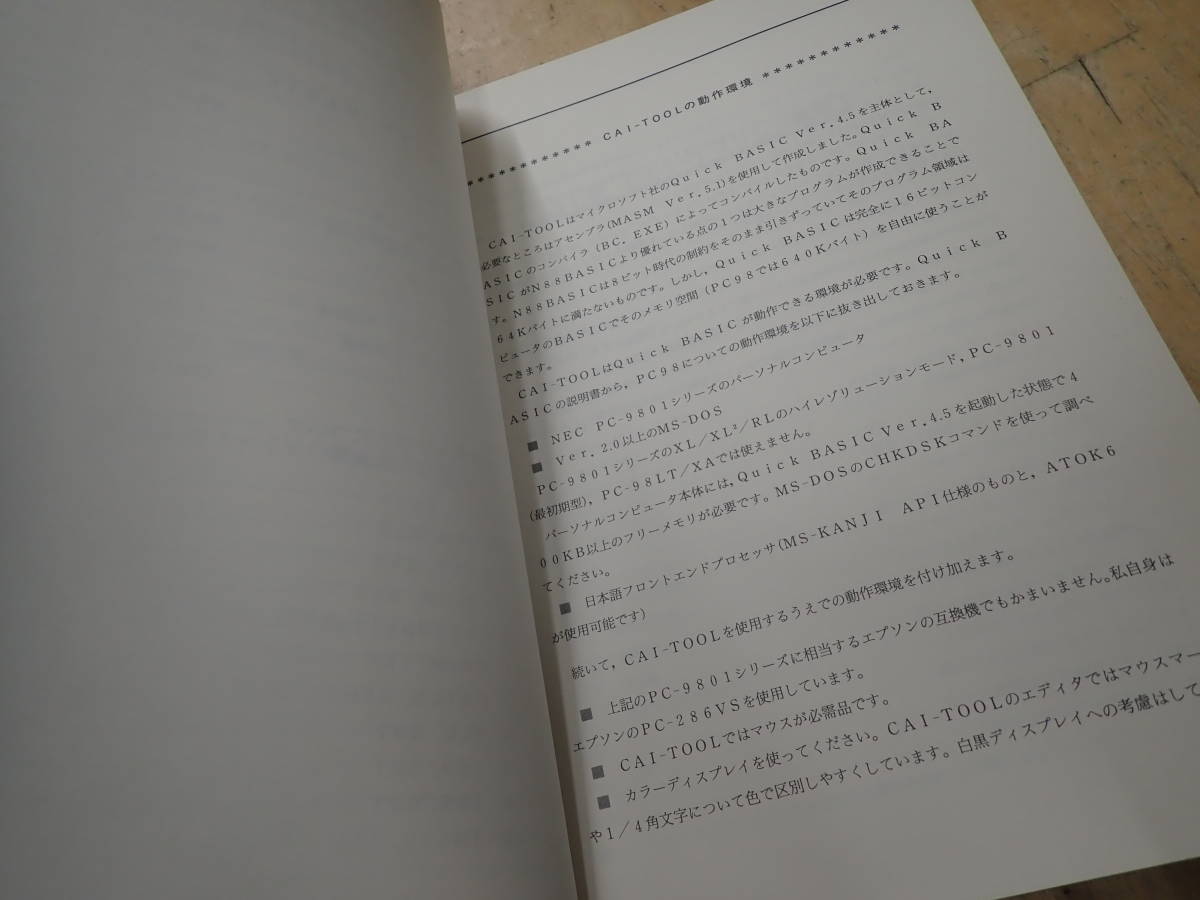 ************ CAI-TOOLの動作環境 ************
CAI-TOOLはマイクロソフト社のQuick BASIC Ver.4.5を主体として,
必要なところはアセンブラ(MASM Ver.5.1)を使用して作成しました。Quick B
ASICのコンパイラ(BC.EXE)によってコンパイルしたものです。Quick BA
SICがN88BASICより優れている点の1つは大きなプログラムが作成できることで
す。N88BASICは8ビット時代の制約をそのまま引きずっていてそのプログラム領域は
64Kバイトに満たないものです。しかし,Quick BASICは完全に16ビットコン
ピュータのBASICでそのメモリ空間(PC98では640Kバイト)を自由に使うことが
できます。
CAI-TOOLはQuick BASICが動作できる環境が必要です。Quick B
ASICの説明書から,PC98についての動作環境を以下に抜き出しておきます。
■ NEC PC-9801シリーズのパーソナルコンピュータ
■ Ver.2.0以上のMS-DOS
PC-9801シリーズのXL/XL²/RLのハイレゾリューションモード,PC-9801
(最初期型),PC-98LT/XAでは使えません。
パーソナルコンピュータ本体には,Quick BASIC Ver.4.5を起動した状態で4
00KB以上のフリーメモリが必要です。MS-DOSのCHKDSKコマンドを使って調べ
てください。
■ 日本語フロントエンドプロセッサ(MS-KANJI API仕様のものと,ATOK6
が使用可能です)
続いて,CAI-TOOLを使用するうえでの動作環境を付け加えます。
■ 上記のPC-9801シリーズに相当するエプソンの互換機でもかまいません。私自身は
エプソンのPC-286VSを使用しています。
■ CAI-TOOLではマウスが必需品です。
■ カラーディスプレイを使ってください。CAI-TOOLのエディタではマウスマー
や1/4角文字について色で区別しやすくしています。白黒ディスプレイへの考慮はして